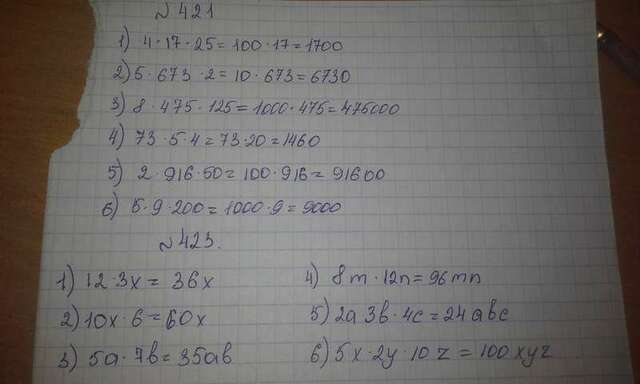 №421
1) 4·17·25=100·17=1700
2) 5·673·2=10·673=6730
3) 8·475·125=1000·475=475000
4) 73·5·4=73·20=1460
5) 2·916·50=100·916=91600
6) 5·9·200=1000·9=9000
№423.
1) 12·3x=36x
2) 10x·6=60x
3) 5a·7b=35ab
4) 8m·12n=96mn
5) 2a 3b·4c=24abc
6) 5x·2y·10z=100xyz